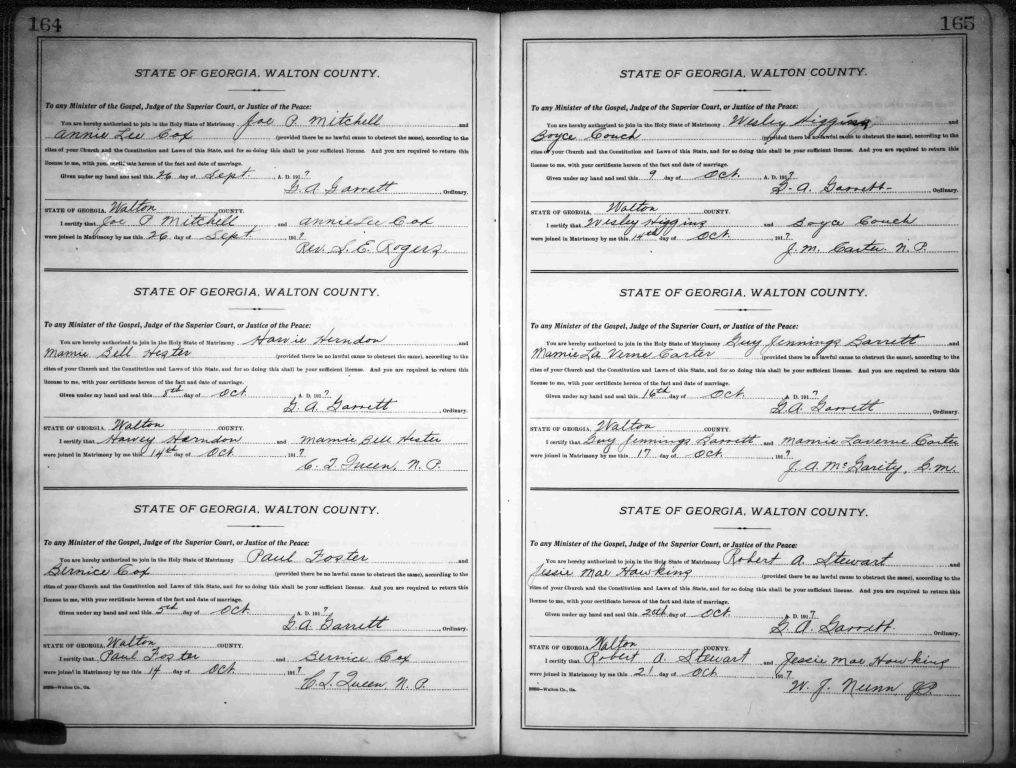 164
STATE OF GEORGIA, WALTON COUNTY.
To any Minister of the Gospel, Judge of the Superior Court, or Justice of the Peace:
You are hereby authorized to join in the Holy State of Matrimony Joe P. Mitchell and
Annie Lee Cox (provided there be no lawful cause to obstruct the same), according to the
rites of your Church and the Constitution and Laws of this State, and for so doing this shall be your sufficient license. And you are required to return this
license to me, with your certificate hereon of the fact and date of marriage.
Given under my hand and seal this 26 day of Sept A. D. 1917
G. A. Garrett Ordinary.
STATE OF GEORGIA, Walton COUNTY.
I certify that Joe P. Mitchell and Annie Lee Cox
were joined in Matrimony by me this 26 day of Sept. 1917
Rev. L. E. Rogers
STATE OF GEORGIA, WALTON COUNTY.
To any Minister of the Gospel, Judge of the Superior Court, or Justice of the Peace:
You are hereby authorized to join in the Holy State of Matrimony Harvie Herndon and
Mamie Bell Hester (provided there be no lawful cause to obstruct the same), according to the
rites of your Church and the Constitution and Laws of this State, and for so doing this shall be your sufficient license. And you are required to return this
license to me, with your certificate hereon of the fact and date of marriage.
Given under my hand and seal this 8th day of Oct A. D. 1917
G. A. Garrett, Ordinary.
STATE OF GEORGIA, Walton COUNTY.
I certify that Harvey Harndon and Mamie Bell Hester
were joined in Matrimony by me this 14th day of Oct 1917
C. T. Queen, N. P.
STATE OF GEORGIA, WALTON COUNTY.
To any Minister of the Gospel, Judge of the Superior Court, or Justice of the Peace:
You are hereby authorized to join in the Holy State of Matrimony Paul Foster and
Bernice Cox (provided there be no lawful cause to obstruct the same), according to the
rites of your Church and the Constitution and Laws of this State, and for so doing this shall be your sufficient license. And you are required to return this
license to me, with your certificate hereon of the fact and date of marriage.
Given under my hand and seal this 5th day of Oct A. D. 1917
G. A. Garrett, Ordinary.
STATE OF GEORGIA, Walton COUNTY.
I certify that Paul Foster and Bernice Cox
were joined in Matrimony by me this 14 day of Oct 1917
C. T. Queen, N. P.
—Walton Co., Ga.
165
STATE OF GEORGIA, WALTON COUNTY.
To any Minister of the Gospel, Judge of the Superior Court, or Justice of the Peace:
You are hereby authorized to join in the Holy State of Matrimony Wesley Higgins and
Boyce Couch (provided there be no lawful cause to obstruct the same), according to the
rites of your Church and the Constitution and Laws of this State, and for so doing this shall be your sufficient license. And you are required to return this
license to me, with your certificate hereon of the fact and date of marriage.
Given under my hand and seal this 9 day of Oct A. D. 1917
G. A. Garrett Ordinary.
STATE OF GEORGIA, Walton COUNTY.
I certify that Wesley Higgins and Boyce Couch
were joined in Matrimony by me this 14th day of Oct. 1917
J. M. Carter N. P.
STATE OF GEORGIA, WALTON COUNTY.
To any Minister of the Gospel, Judge of the Superior Court, or Justice of the Peace:
You are hereby authorized to join in the Holy State of Matrimony Guy Jennings Barrett and
Mamie La Verne Carter (provided there be no lawful cause to obstruct the same), according to the
rites of your Church and the Constitution and Laws of this State, and for so doing this shall be your sufficient license. And you are required to return this
license to me, with your certificate hereon of the fact and date of marriage.
Given under my hand and seal this 16th day of Oct. A. D. 1917
G. A. Garrett Ordinary.
STATE OF GEORGIA, Walton COUNTY.
I certify that Guy Jennings Barrett and Mamie Laverne Carter
were joined in Matrimony by me this 17 day of Oct. 1917
J. A. McGarity, G. M.
STATE OF GEORGIA, WALTON COUNTY.
To any Minister of the Gospel, Judge of the Superior Court, or Justice of the Peace:
You are hereby authorized to join in the Holy State of Matrimony Robert A. Stewart and
Jessie Mae Hawking (provided there be no lawful cause to obstruct the same), according to the
rites of your Church and the Constitution and Laws of this State, and for so doing this shall be your sufficient license. And you are required to return this
license to me, with your certificate hereon of the fact and date of marriage.
Given under my hand and seal this 20th day of Oct. A. D. 1917
G. A. Garrett, Ordinary.
STATE OF GEORGIA, Walton COUNTY.
I certify that Robert A. Stewart and Jessie Mae Hawking
were joined in Matrimony by me this 21 day of Oct. 1917
W. J. Nunn, J.P.
—Walton Co., Ga.